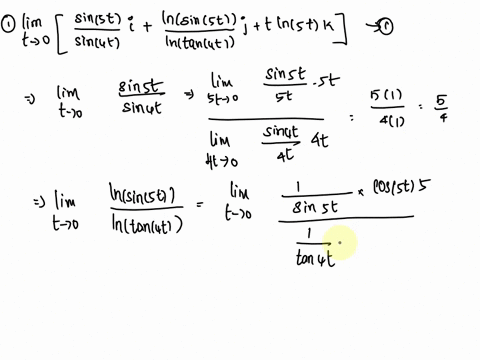 ① lim t→0 [ sin(5t)/sin(4t) i + ln(sin(5t))/ln(tan(4t)) j + t ln(5t) k ] → ①
⇒ lim t→0 sin5t/sin4t ⇒ lim 5t→0 sin5t/5t · 5t / lim 4t→0 sin4t/4t 4t = 5(1)/4(1) = 5/4
⇒ lim t→0 ln(sin(5t))/ln(tan(4t)) = lim t→0 1/sin5t × cos(5t) 5 / 1/tan4t ·